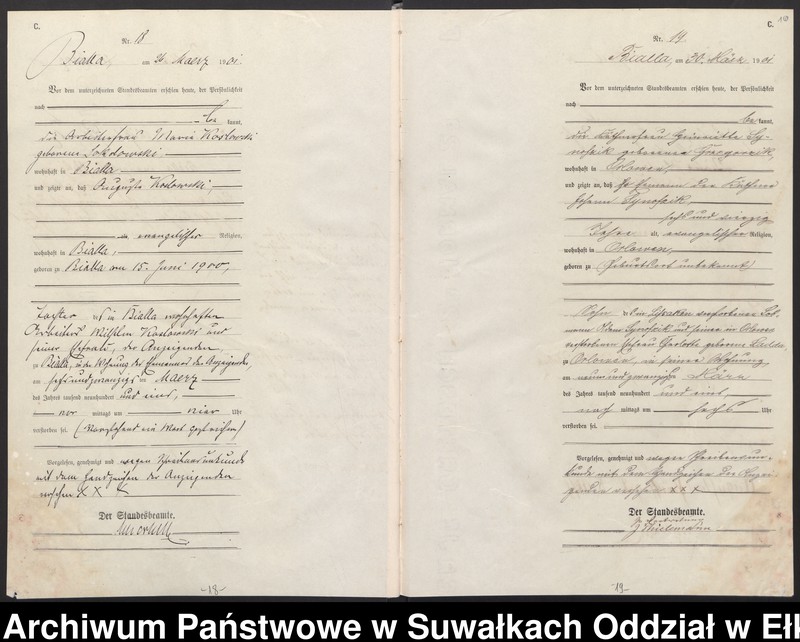 C.
Nr. 18
Bialla, am 26 Maerz 1901.
Vor dem unterzeichneten Standesbeamten erschien heute, der Persönlichkeit
nach
be kannt,
die Arbeiterfrau Maria Koslowski
geborene Sokolowski
wohnhaft in Bialla
und zeigte an, daß Auguste Koslowski,
evangelischer Religion,
wohnhaft in Bialla,
geboren zu Bialla am 15. Juni 1900,
Tochter des in Bialla wohnhaften
Arbeiters Wilhelm Koslowski und
seiner Ehefrau, der Anzeigenden,
zu Bialla, in der Wohnung der
am sechsundzwanzigsten Maerz
des Jahres tausend neunhundert und eins,
vor mittags um vier Uhr
verstorben sei. (Vorstehend ein Wort gestrichen)
Vorgelesen, genehmigt und wegen Schreibensunkunde
mit dem Handzeichen der Anzeigenden
versehen X X X
Der Standesbeamte.
-18-
C.
Nr. 19
Bialla, am 30. März 1901
Vor dem unterzeichneten Standesbeamten erschien heute, der Persönlichkeit
nach
be kannt,
die Käthnerfrau Henriette
geborene
wohnhaft in Orlowen,
und zeigte an, daß ihr Ehemann der Käthner
Johann
sechs und siebzig
Jahre alt, evangelischer Religion,
wohnhaft in Orlowen,
geboren zu (Geburtsort unbekannt)
Sohn
verstorbenen Ehefrau Charlotte geborene
zu Orlowen, in seiner Wohnung,
am neunundzwanzigsten März
des Jahres tausend neunhundert und eins
nach mittags um sechs Uhr
verstorben sei.
Vorgelesen, genehmigt und wegen Schreibensun-
kunde mit dem Handzeichen der Anzei-
genden versehen X X X
Der Standesbeamte.
In Vertretung
-19-
Archiwum Państwowe w Suwałkach Oddział w Eł